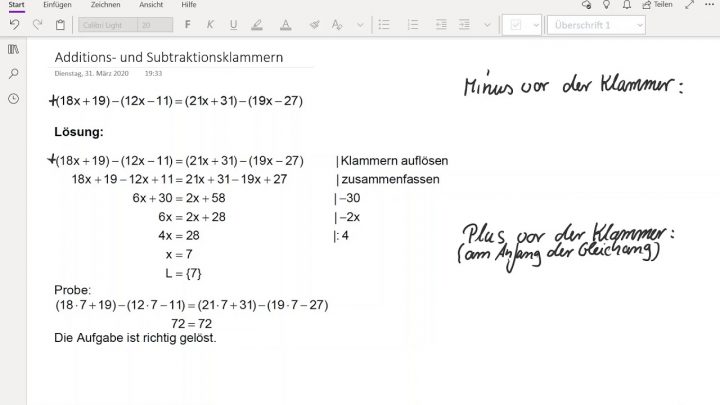 Start Einfügen Zeichnen Ansicht Hilfe Teilen
Calibri Light 20 F K U A A Überschrift 1
Additions- und Subtraktionsklammern
Dienstag, 31. März 2020 19:33
Minus vor der Klammer:
+(18x+19)−(12x−11)=(21x+31)−(19x−27)
Lösung:
+(18x+19)−(12x−11)=(21x+31)−(19x−27) |Klammern auflösen
18x+19−12x+11=21x+31−19x+27 |zusammenfassen
6x+30=2x+58 |−30
6x=2x+28 |−2x
4x=28 |:4
x=7
L={7}
Plus vor der Klammer:
(am Anfang der Gleichung)
Probe:
(18·7+19)−(12·7−11)=(21·7+31)−(19·7−27)
72=72
Die Aufgabe ist richtig gelöst.